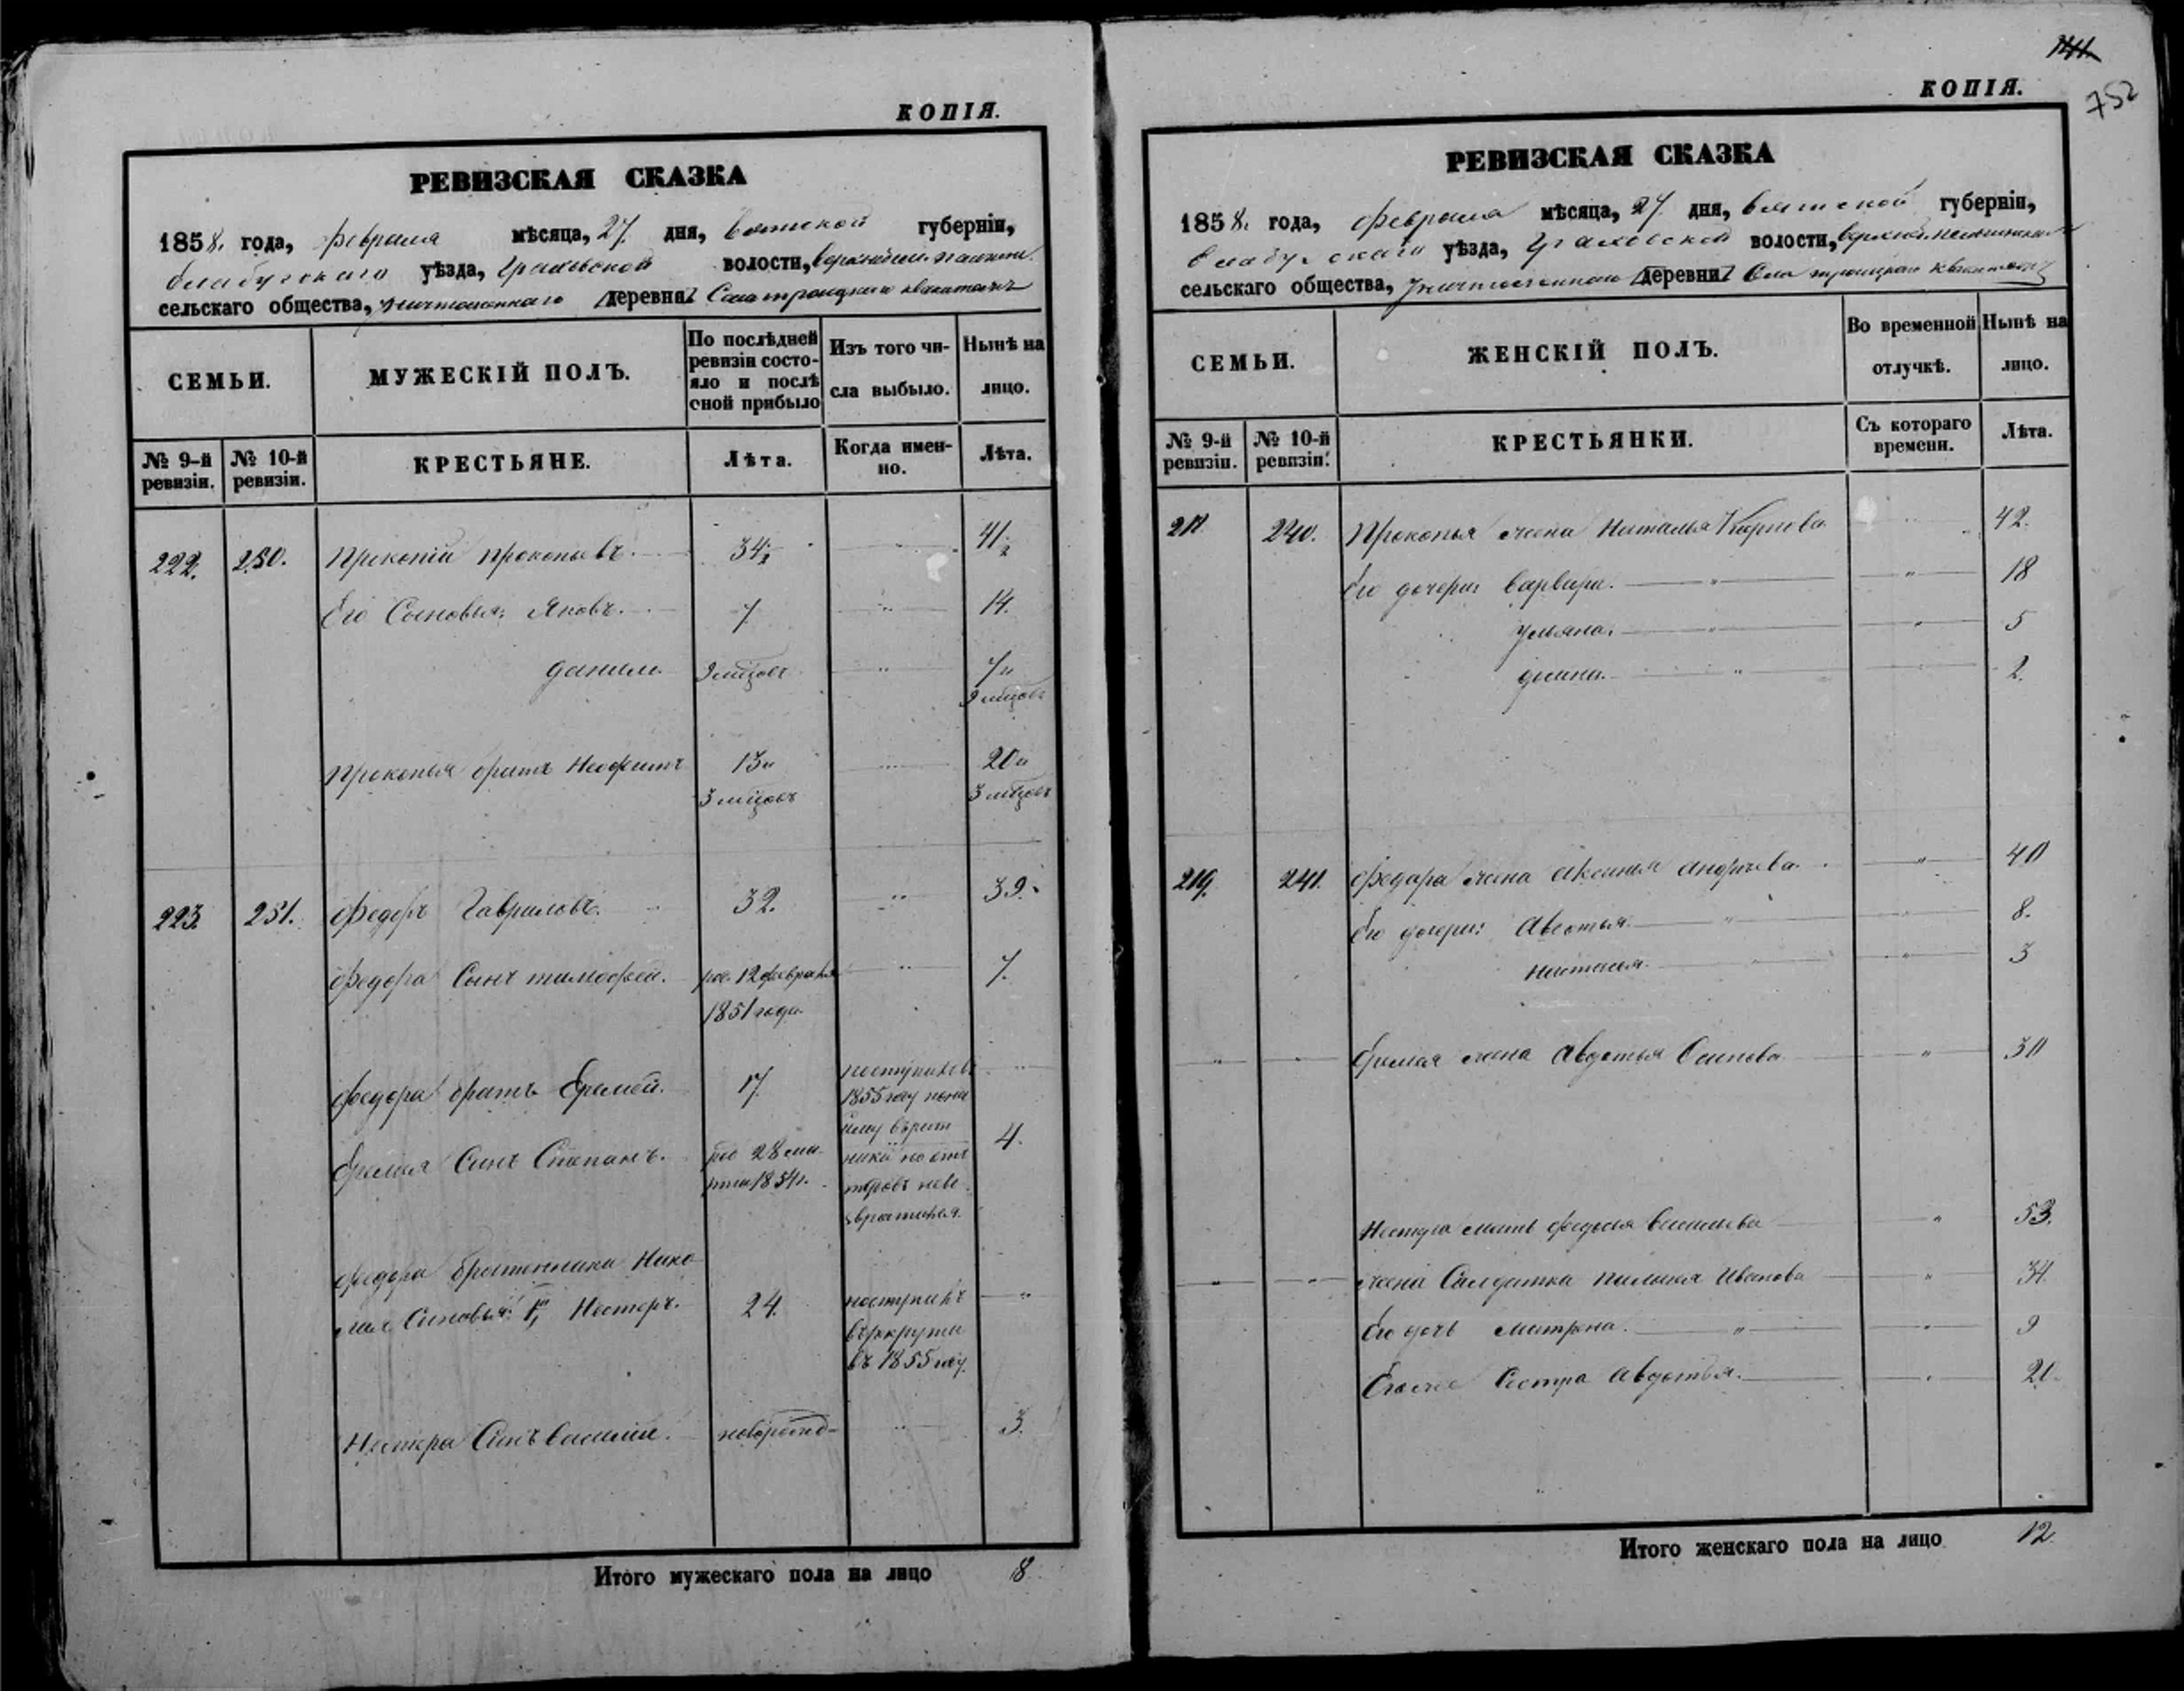 КОПІЯ.
РЕВИЗСКАЯ СКАЗКА
1858. года, февраля мѣсяца, 27. дня, вятской губерніи,
елабугскаго уѣзда, Граховской волости,
сельскаго общества, деревни Села троицкаго
СЕМЬИ.
МУЖЕСКІЙ ПОЛЪ.
По послѣдней ревизіи состо-
яло и послѣ
сной прибыло
Изъ того чи-
сла выбыло.
Нынѣ на
лицо.
№ 9-й ревизіи.
№ 10-й ревизіи.
КРЕСТЬЯНЕ.
Лѣта.
Когда имен-
но.
Лѣта.
222. 230. Прокопій прокопьевъ. 34½ 41½
Его Сыновья: Яковъ. 7 14.
данило. 9 мѣцовъ 7 и
9 мѣцовъ
Прокопья братъ Неофитъ 13 и 20 и
3 мѣцовъ 3 мѣцовъ
223. 231. Федоръ Гавриловъ. 32. 39.
Федора Сынъ тимофей. рож. 12 февраля 7.
1851 года
Федора братъ Еремей. 17 поступилъ въ
1855 году
Еремея Сынъ Степанъ. рож 28 ма- 4.
рта 1854 г.
Федора братенника Нико-
лая Сыновья: 1й, Нестеръ. 24. поступилъ
въ рекруты
въ 1855 году.
Нестера Сынъ василій. новорожд- 3.
Итого мужескаго пола на лицо 8.
752
КОПІЯ.
РЕВИЗСКАЯ СКАЗКА
1858. года, февраля мѣсяца, 27. дня, вятской губерніи,
елабугскаго уѣзда, Граховской волости,
сельскаго общества, деревни Села троицкаго
СЕМЬИ.
ЖЕНСКІЙ ПОЛЪ.
Во временной
отлучкѣ.
Нынѣ на
лицо.
№ 9-й ревизіи.
№ 10-й ревизіи.
КРЕСТЬЯНКИ.
Съ котораго
времени.
Лѣта.
240. Прокопья жена Наталья Карпова 42.
Его дочери: варвара. 18
ульяна. 5
домна. 2.
219. 241. Федора жена Аксинья андреева. 40
Его дочери: Авдотья. 8.
настасья. 3
Еремея жена Авдотья Осипова 30
Нестера мать федосья васильева 53.
жена Салдатка пилагея Иванова 34.
Его дочь матрена. 9
Его же Сестра Авдотья. 20.
Итого женскаго пола на лицо 12.